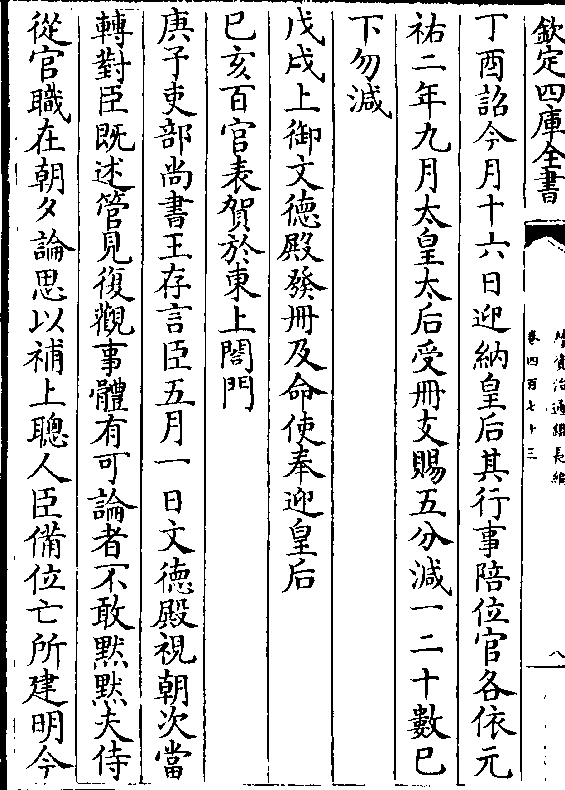 欽定四庫全書
續資治通鑑長編
卷四百七十三
八
丁酉詔今月十六日迎納皇后其行事陪位官各依元
祐二年九月太皇太后受冊支賜五分減一二十數已
下勿減
戊戌上御文德殿發冊及命使奉迎皇后
己亥百官表賀於東上閤門
庚子吏部尚書王存言臣五月一日文德殿視朝次當
轉對臣既述管見復觀事體有可論者不敢默默夫侍
從官職在朝夕論思以補上聰人臣備位亡所建明今